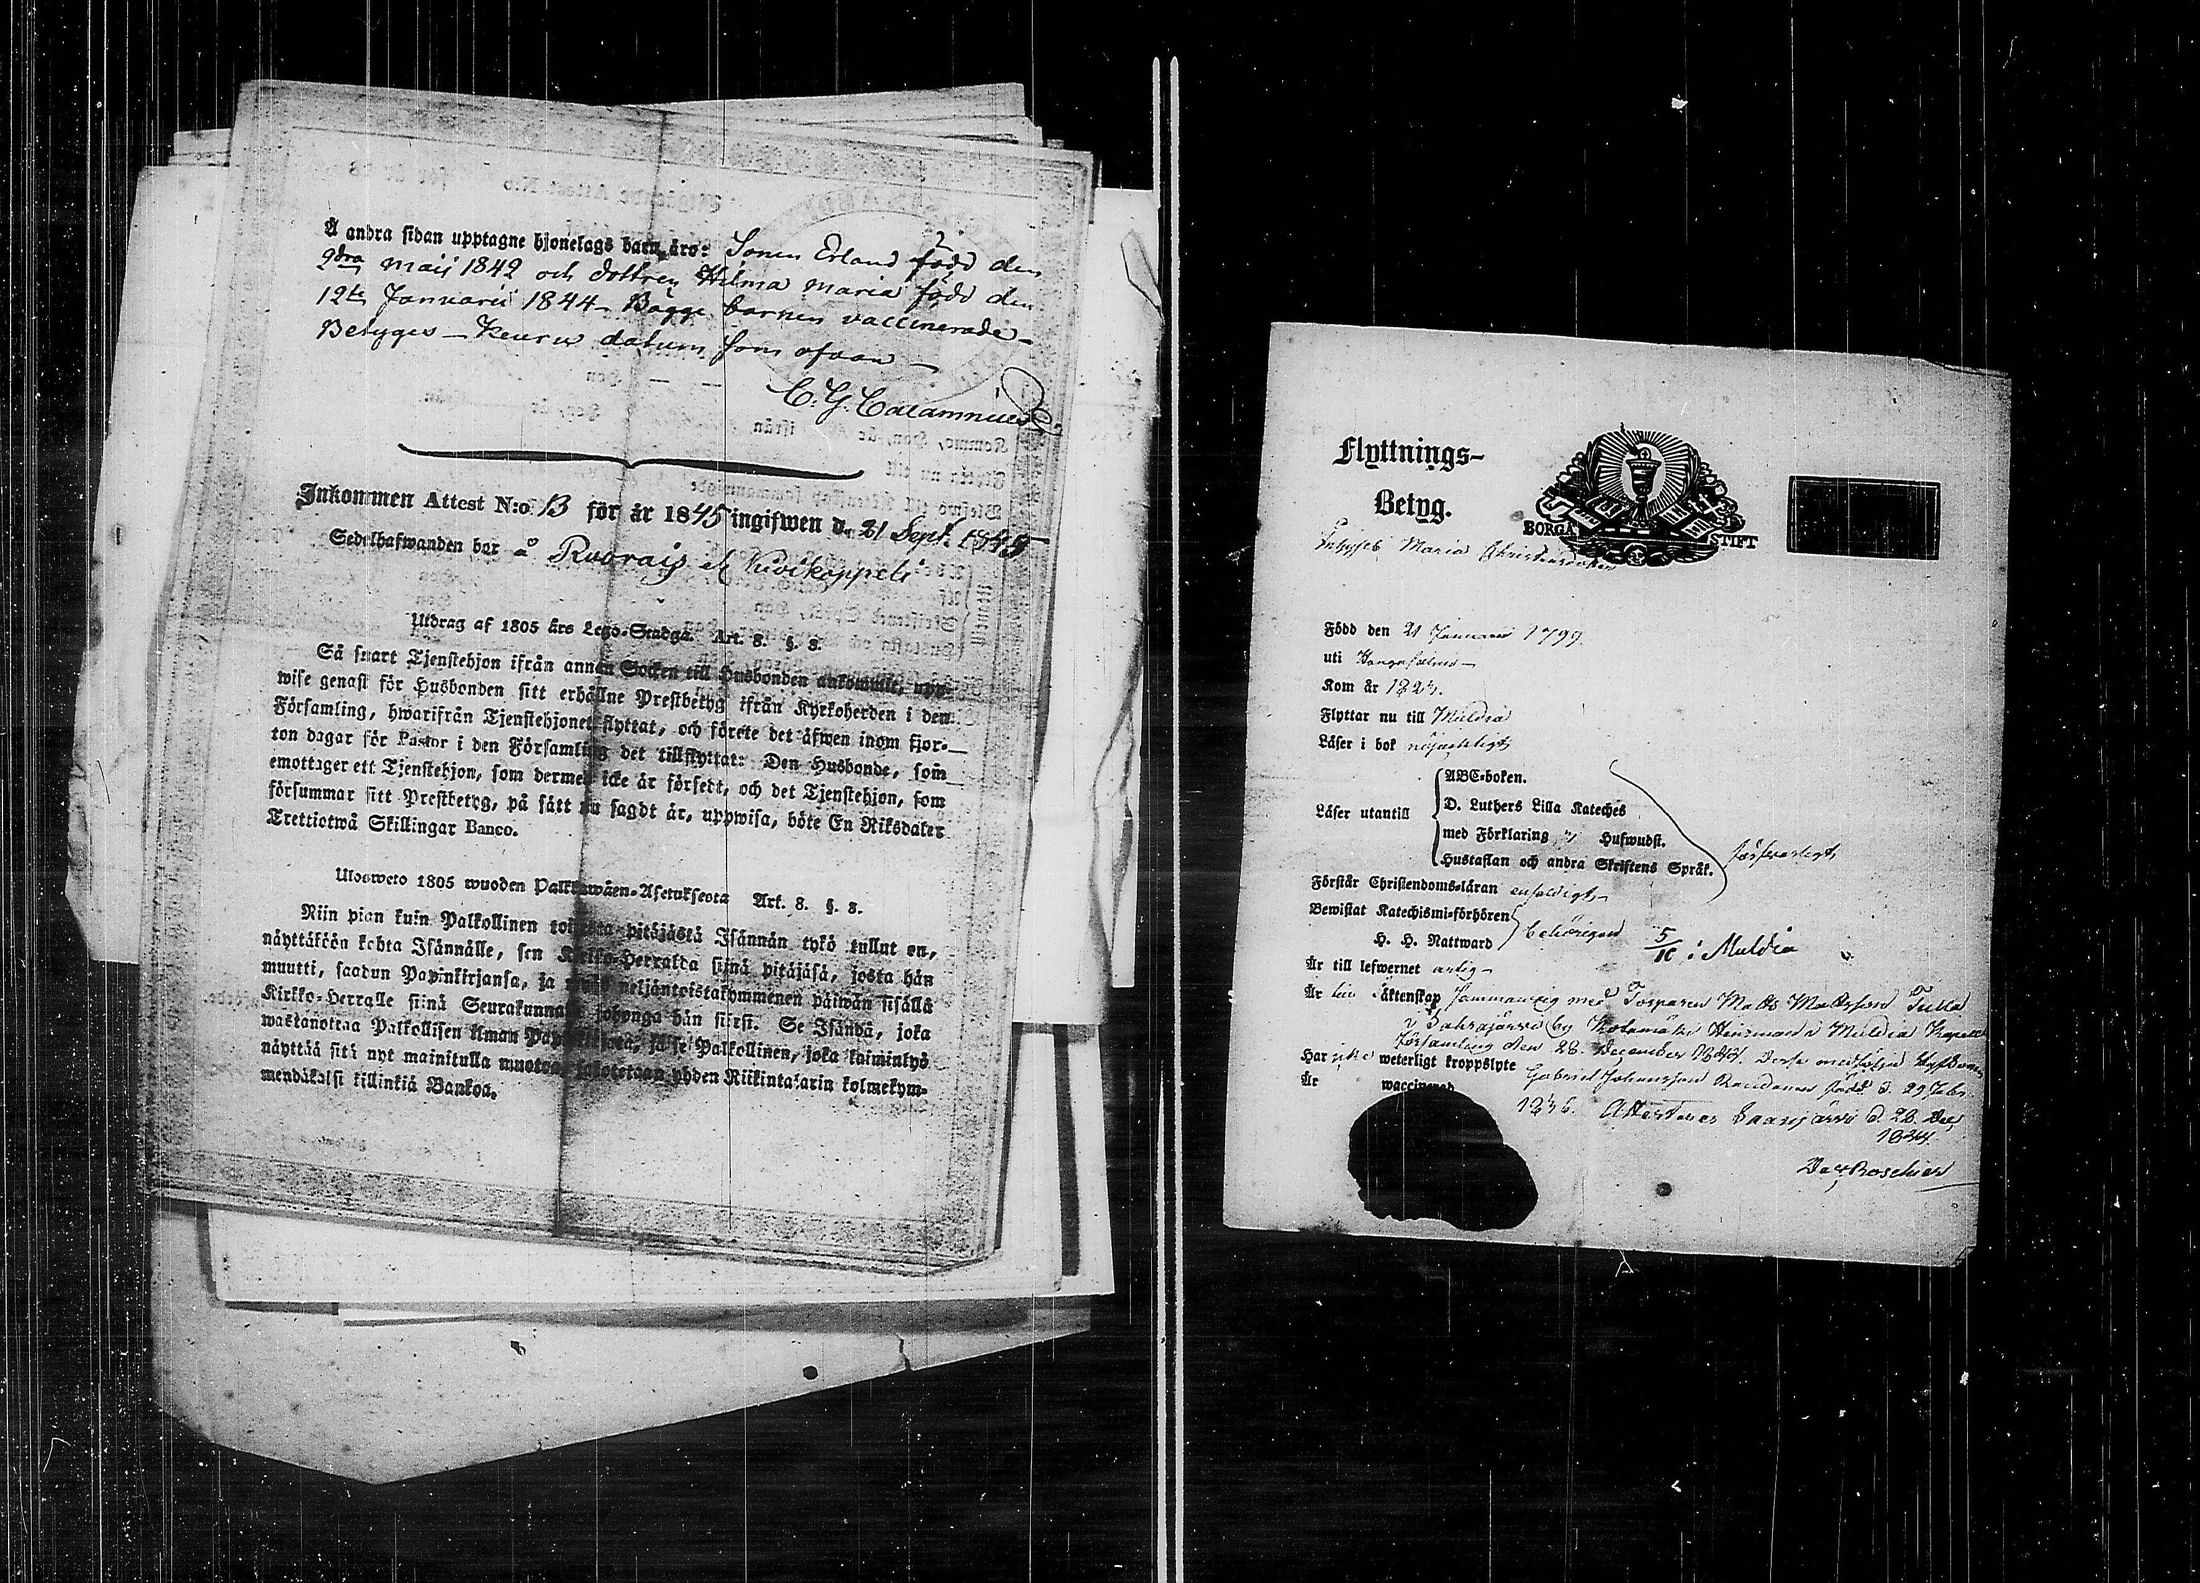 Å andra sidan upptagne hjonelags barn äro: Sonen Erland född den
2dra maij 1842 och dottren Hilma Maria född den
12te Januarii 1844. Bägge barnen vaccinerade
Betyges – Keuru datum som ofvan –
C. G. Calamnius
Inkommen Attest N:o 13 för år 1845 ingifwen d. 21 Sept. 1845
Sedelhafwanden bor å Ruorais
Utdrag af 1805 års Lego-Stadga. Art. 8. §. 8.
Så snart Tjenstehjon ifrån annan Socken till Husbonden ankommit, upp-
wise genast för Husbonden sitt erhållne Prestbetyg ifrån Kyrkoherden i den
Församling, hwarifrån Tjenstehjonet flyttat, och förete det äfwen inom fjor-
ton dagar för Pastor i den Församling det tillflyttat: Den Husbonde, som
emottager ett Tjenstehjon, som dermed icke är försedt, och det Tjenstehjon, som
försummar sitt Prestbetyg, på sätt nu sagdt är, uppwisa, böte En Riksdaler
Trettiotwå Skillingar Banco.
Ulosweto 1805 wuoden Palkkawäen-Asetuksesta Art. 8. §. 8.
Niin pian kuin Palkollinen toisesta pitäjästä Isännän tykö tullut on,
näyttäköön kohta Isännälle, sen Kirkko-Herralda siinä pitäjäsä, josta hän
muutti, saadun Papinkirjansa, ja neljäntoistakymmenen päiwän sisällä
Kirkko-Herralle siinä Seurakunnasa johonga hän siirsi. Se Isändä, joka
wastanottaa Palkollisen ilman Papinkirjata, ja se Palkollinen, joka laiminlyö
näyttää sitä nyt mainitulla muotoa, sakotetaan yhden Riikintalarin kolmekym-
mendäkaksi killinkiä Bankoa.
Flyttnings-
Betyg.
BORGÅ STIFT
Maria Christersdotter
Född den 21 Januarii 1799.
uti Kangasalmi –
Kom år
Flyttar nu till Muldia
Läser i bok nöjaktligt
Läser utantill
ABC-boken.
D. Luthers Lilla Kateches
med Förklaring Hufwudst.
Hustaflan och andra Skriftens Språk.
försvarligt
Förstår Christendoms-läran enfaldigt
Bewistat Katechismi-förhören
H. H. Nattward
behörigen
5/10 i Muldia
Är till lefwernet ärlig –
Är äktenskap sammanvig med Torparen Matts Mattsson Tulla
by Hemmans Muldia Kapell
Församling den 28 December 1834.
Har icke weterligt kroppslyte
Gabriel Johansson född d. 29 Febr.
Är waccinerad
1836. Attesteras Saarijärvi d. 28 Dec
1834.
Roschier